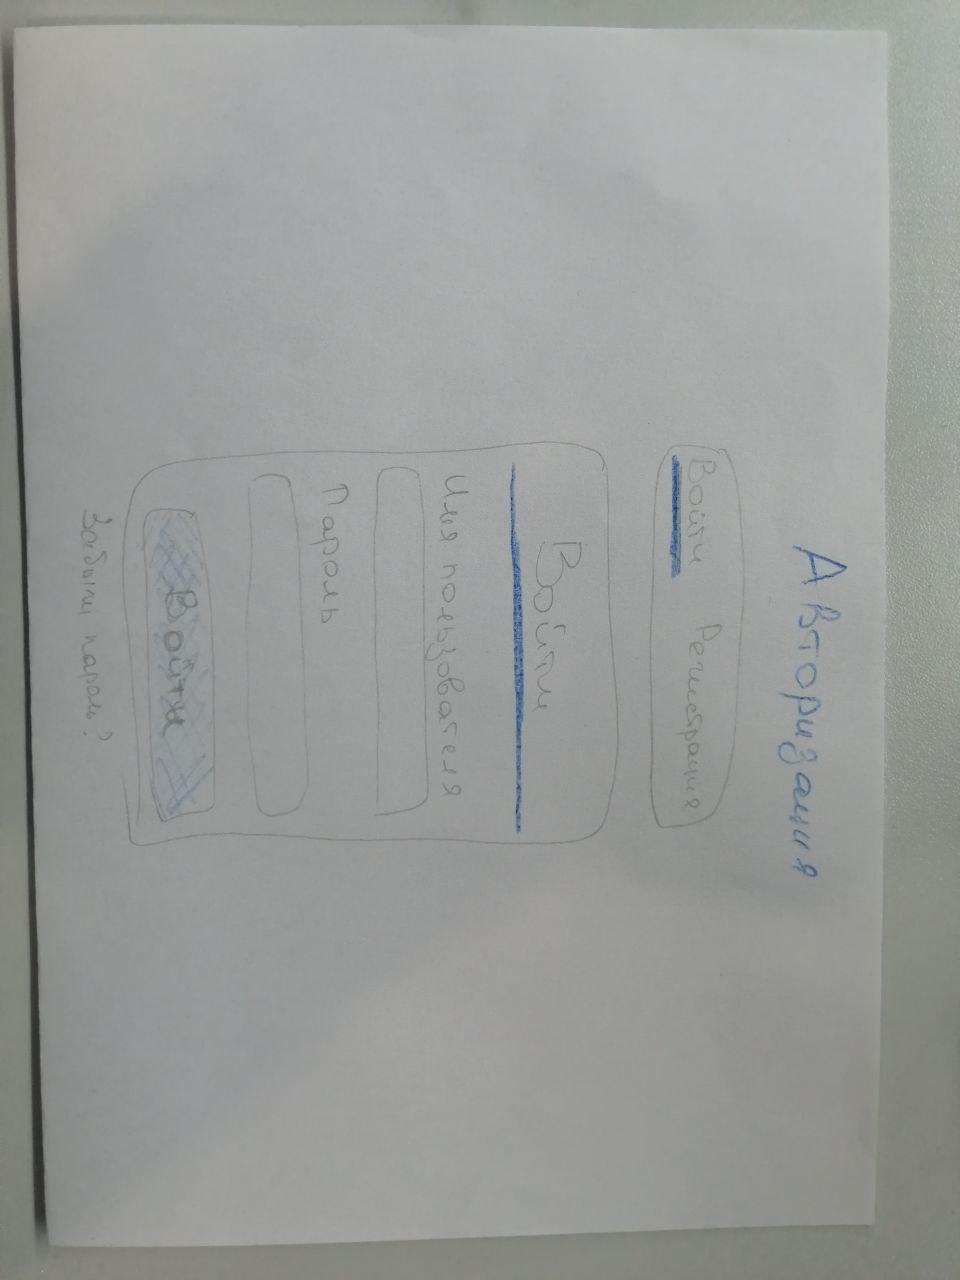 Авторизация
Войти Регистрация
Войти
Имя пользователя
Пароль
Войти
Забыли пароль?